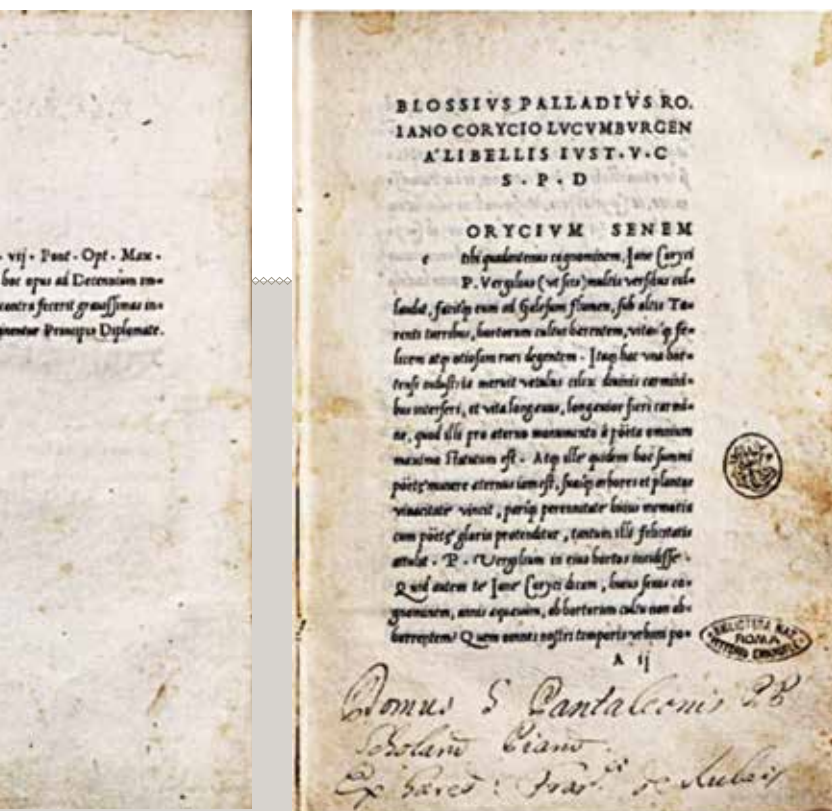 . vij . Pont . Opt . Max .
hoc opus ad Decennium im=
contra fecerit grauissimas in=
Principis Diplomate.
BLOSSIVS PALLADIVS RO.
IANO CORYCIO LVCVMBVRGEN
A' LIBELLIS IVST. V. C
S . P . D
ORYCIVM SENEM
c tibi cognominem, Iane Coryci
P. Vergilius (vt scis) multis versibus col=
laudat, facitq eum ad Galesum flumen, sub altis Ta=
renti turribus, hortorum cultui herentem, vitaq fe=
licem atq otiosam ruri degentem . Itaq hac vna hor=
trusi industria meruit vetulus cilix diuinis carmini=
bus interseri, et vita longæuus, longæuior fieri carmi=
ne, quod illi pro æterno monumento à pöeta omnium
maximo statutum est . Atq ille quidem hoc summi
pöetę munere æternus iam est, suasq arbores et plantas
viuacitate vincit, pariq perennitate huius memoria
cum pöetę gloria protenditur, tantum illi felicitatis
attulit . P . Vergilium in eius hortos incidisse .
Quid autem te Iane Coryci dicam, huius senis co=
gnominem, annis equæuum, ab hortorum cultu non ab=
horrentem? Quem omnes nostri temporis vrbani po=
A ij
BIBLIOTECA NAZ.
ROMA
VITTORIO EMANUELE
Domus S Pantaleonis
Scholarū Piarū
Ex hæred: de Rubeis